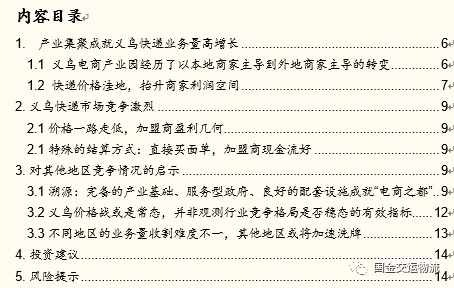 内容目录
1. 产业集聚成就义乌快递业务量高增长 6
1.1 义乌电商产业园经历了以本地商家主导到外地商家主导的转变 6
1.2 快递价格洼地，抬升商家利润空间 7
2. 义乌快递市场竞争激烈 9
2.1 价格一路走低，加盟商盈利几何 9
2.1 特殊的结算方式：直接买面单，加盟商现金流好 9
3. 对其他地区竞争情况的启示 9
3.1 溯源：完备的产业基础、服务型政府、良好的配套设施成就“电商之都” 9
3.2 义乌价格战或是常态，并非观测行业竞争格局是否稳态的有效指标 12
3.3 不同地区的业务量收割难度不一，其他地区或将加速洗牌 13
4. 投资建议 14
5. 风险提示 14
国金交运物流